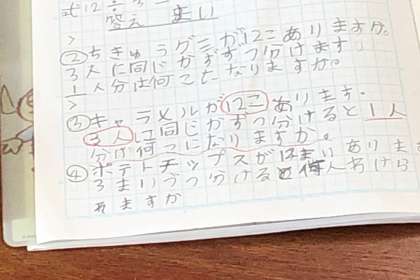 式12÷3
答え まい
②ちきゅうグミが12こあります。
3人に同じかずずつ分けます
1人分は何こになりますか。
③キャラメルが12こあります。
3人に同じかずつ分けると1人
分は何こになりますか。
④ポテトチップスが12まいありま
3まいづつ分けると何人わけら
れますか